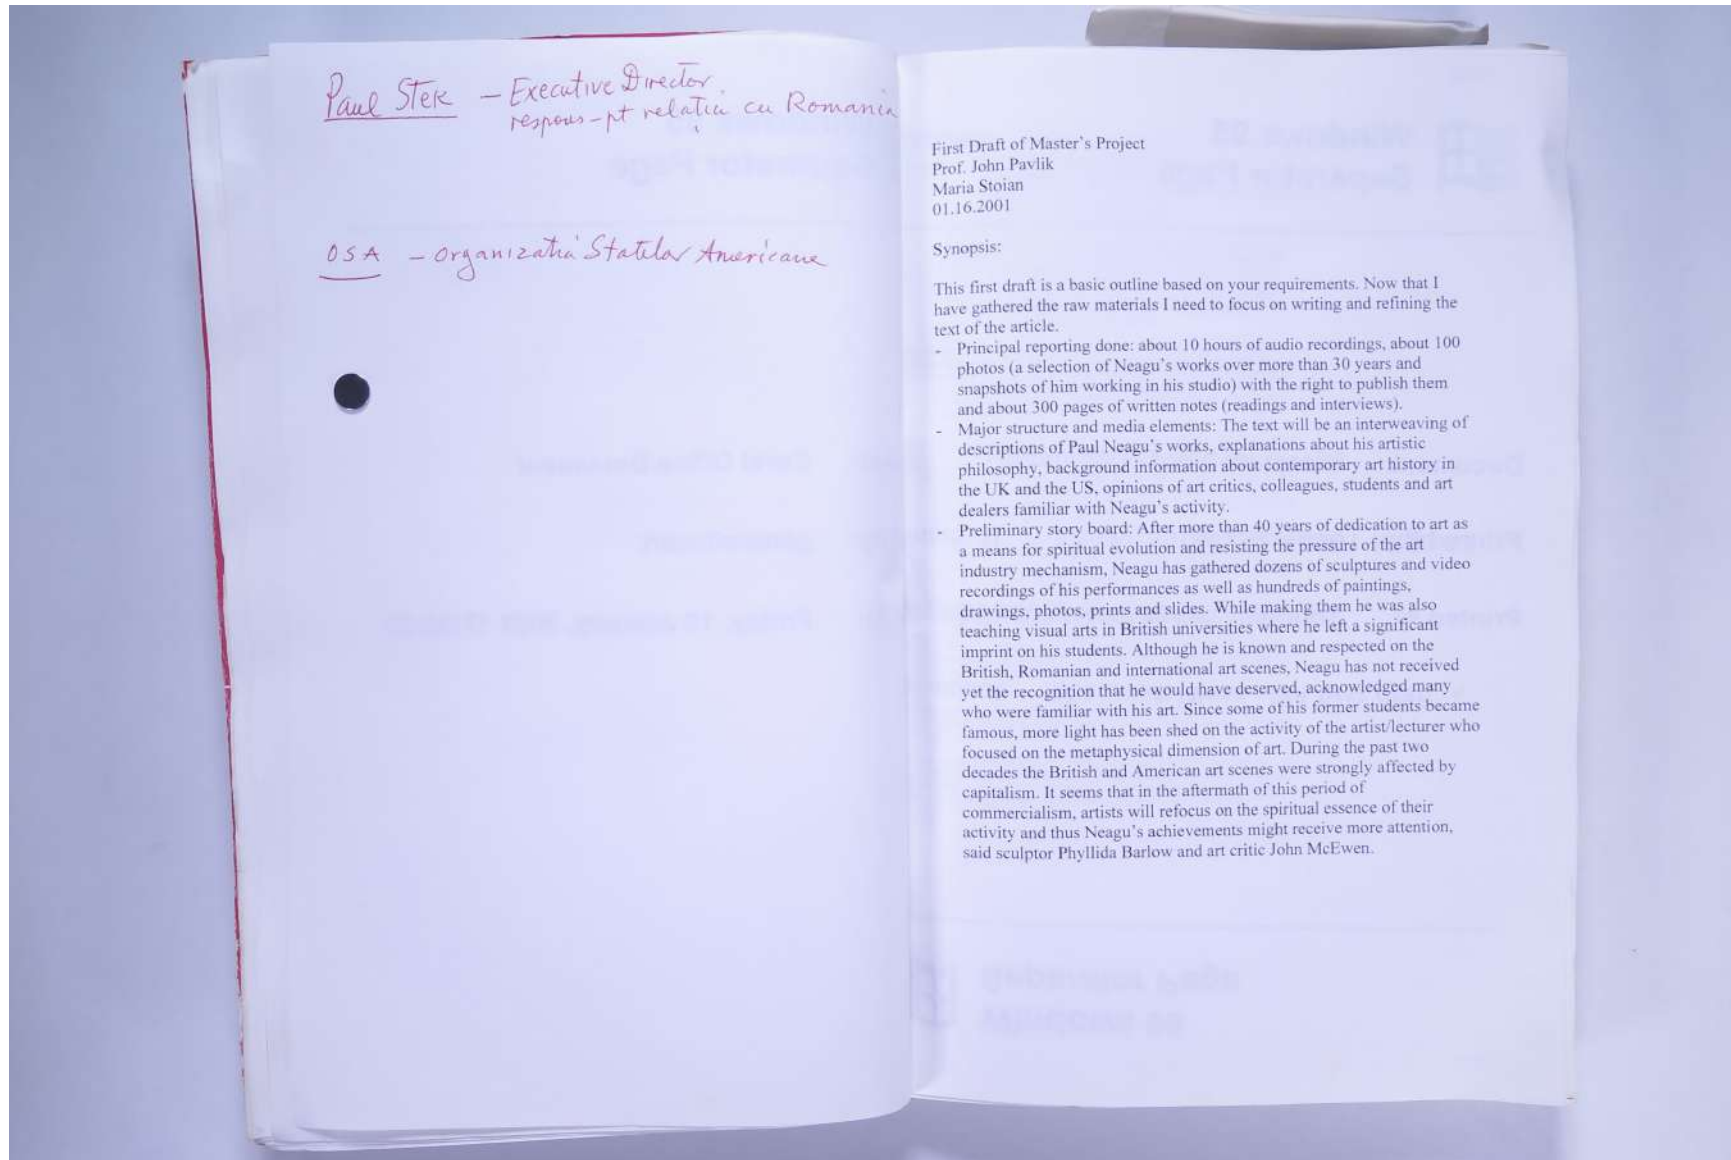 Paul Stek — Executive Director
respons-pt relatiu cu Romania
OSA — Organizatia Statelor Americane
First Draft of Master's Project
Prof. John Pavlik
Maria Stoian
01.16.2001
Synopsis:
This first draft is a basic outline based on your requirements. Now that I
have gathered the raw materials I need to focus on writing and refining the
text of the article.
- Principal reporting done: about 10 hours of audio recordings, about 100
photos (a selection of Neagu's works over more than 30 years and
snapshots of him working in his studio) with the right to publish them
and about 300 pages of written notes (readings and interviews).
- Major structure and media elements: The text will be an interweaving of
descriptions of Paul Neagu's works, explanations about his artistic
philosophy, background information about contemporary art history in
the UK and the US, opinions of art critics, colleagues, students and art
dealers familiar with Neagu's activity.
- Preliminary story board: After more than 40 years of dedication to art as
a means for spiritual evolution and resisting the pressure of the art
industry mechanism, Neagu has gathered dozens of sculptures and video
recordings of his performances as well as hundreds of paintings,
drawings, photos, prints and slides. While making them he was also
teaching visual arts in British universities where he left a significant
imprint on his students. Although he is known and respected on the
British, Romanian and international art scenes, Neagu has not received
yet the recognition that he would have deserved, acknowledged many
who were familiar with his art. Since some of his former students became
famous, more light has been shed on the activity of the artist/lecturer who
focused on the metaphysical dimension of art. During the past two
decades the British and American art scenes were strongly affected by
capitalism. It seems that in the aftermath of this period of
commercialism, artists will refocus on the spiritual essence of their
activity and thus Neagu's achievements might receive more attention,
said sculptor Phyllida Barlow and art critic John McEwen.